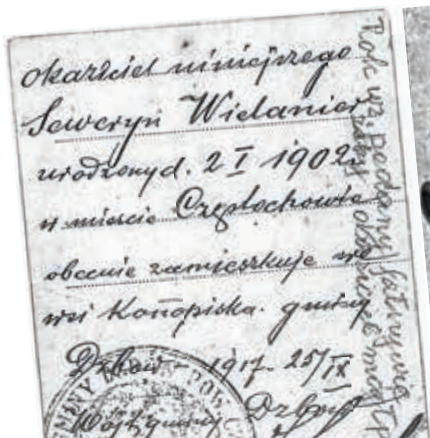 okaziciel niniejszego
Seweryn Wielanier
urodzony d. 2 I 1902 r.
w mieście Częstochowie
obecnie zamieszkuje we
wsi Konopiska. gminy
Dźbów - 1917 - 25/IX
Wójt gminy Dźbów
GMINY
Rok ur. podany fałszywie